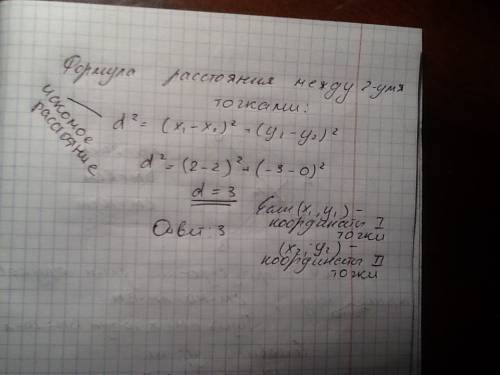 Формула расстояния между 2-умя
точками:
искомое
расстояние
d² = (x₁ - x₂)² + (y₁ - y₂)²
d² = (2-2)² + (-3-0)²
d = 3
Ответ: 3
Если (x₁, y₁) -
координаты I
точки
(x₂, y₂) -
координаты II
точки